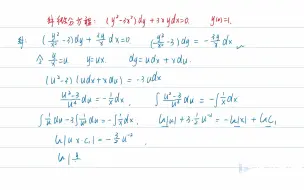 解微分方程: (y²-3x²)dy+3xydx=0. y(0)=1.
解: (y²/x²-3)dy+3y/x dx=0. (y²/x²-3)dy=-3y/x dx
令 y/x=u y=ux. dy=udx+xdu.
(u²-3)(udx+xdu)=-3udx
u²-3/u³ du=-1/x dx. ∫u²-3/u³ du=-∫1/x dx
∫1/u du-3∫1/u³ du=-∫1/x dx. ln|u|+3·½u⁻²=-ln|x|+lnC₁
ln|u×C₁|=-3/2 u⁻²
ln|